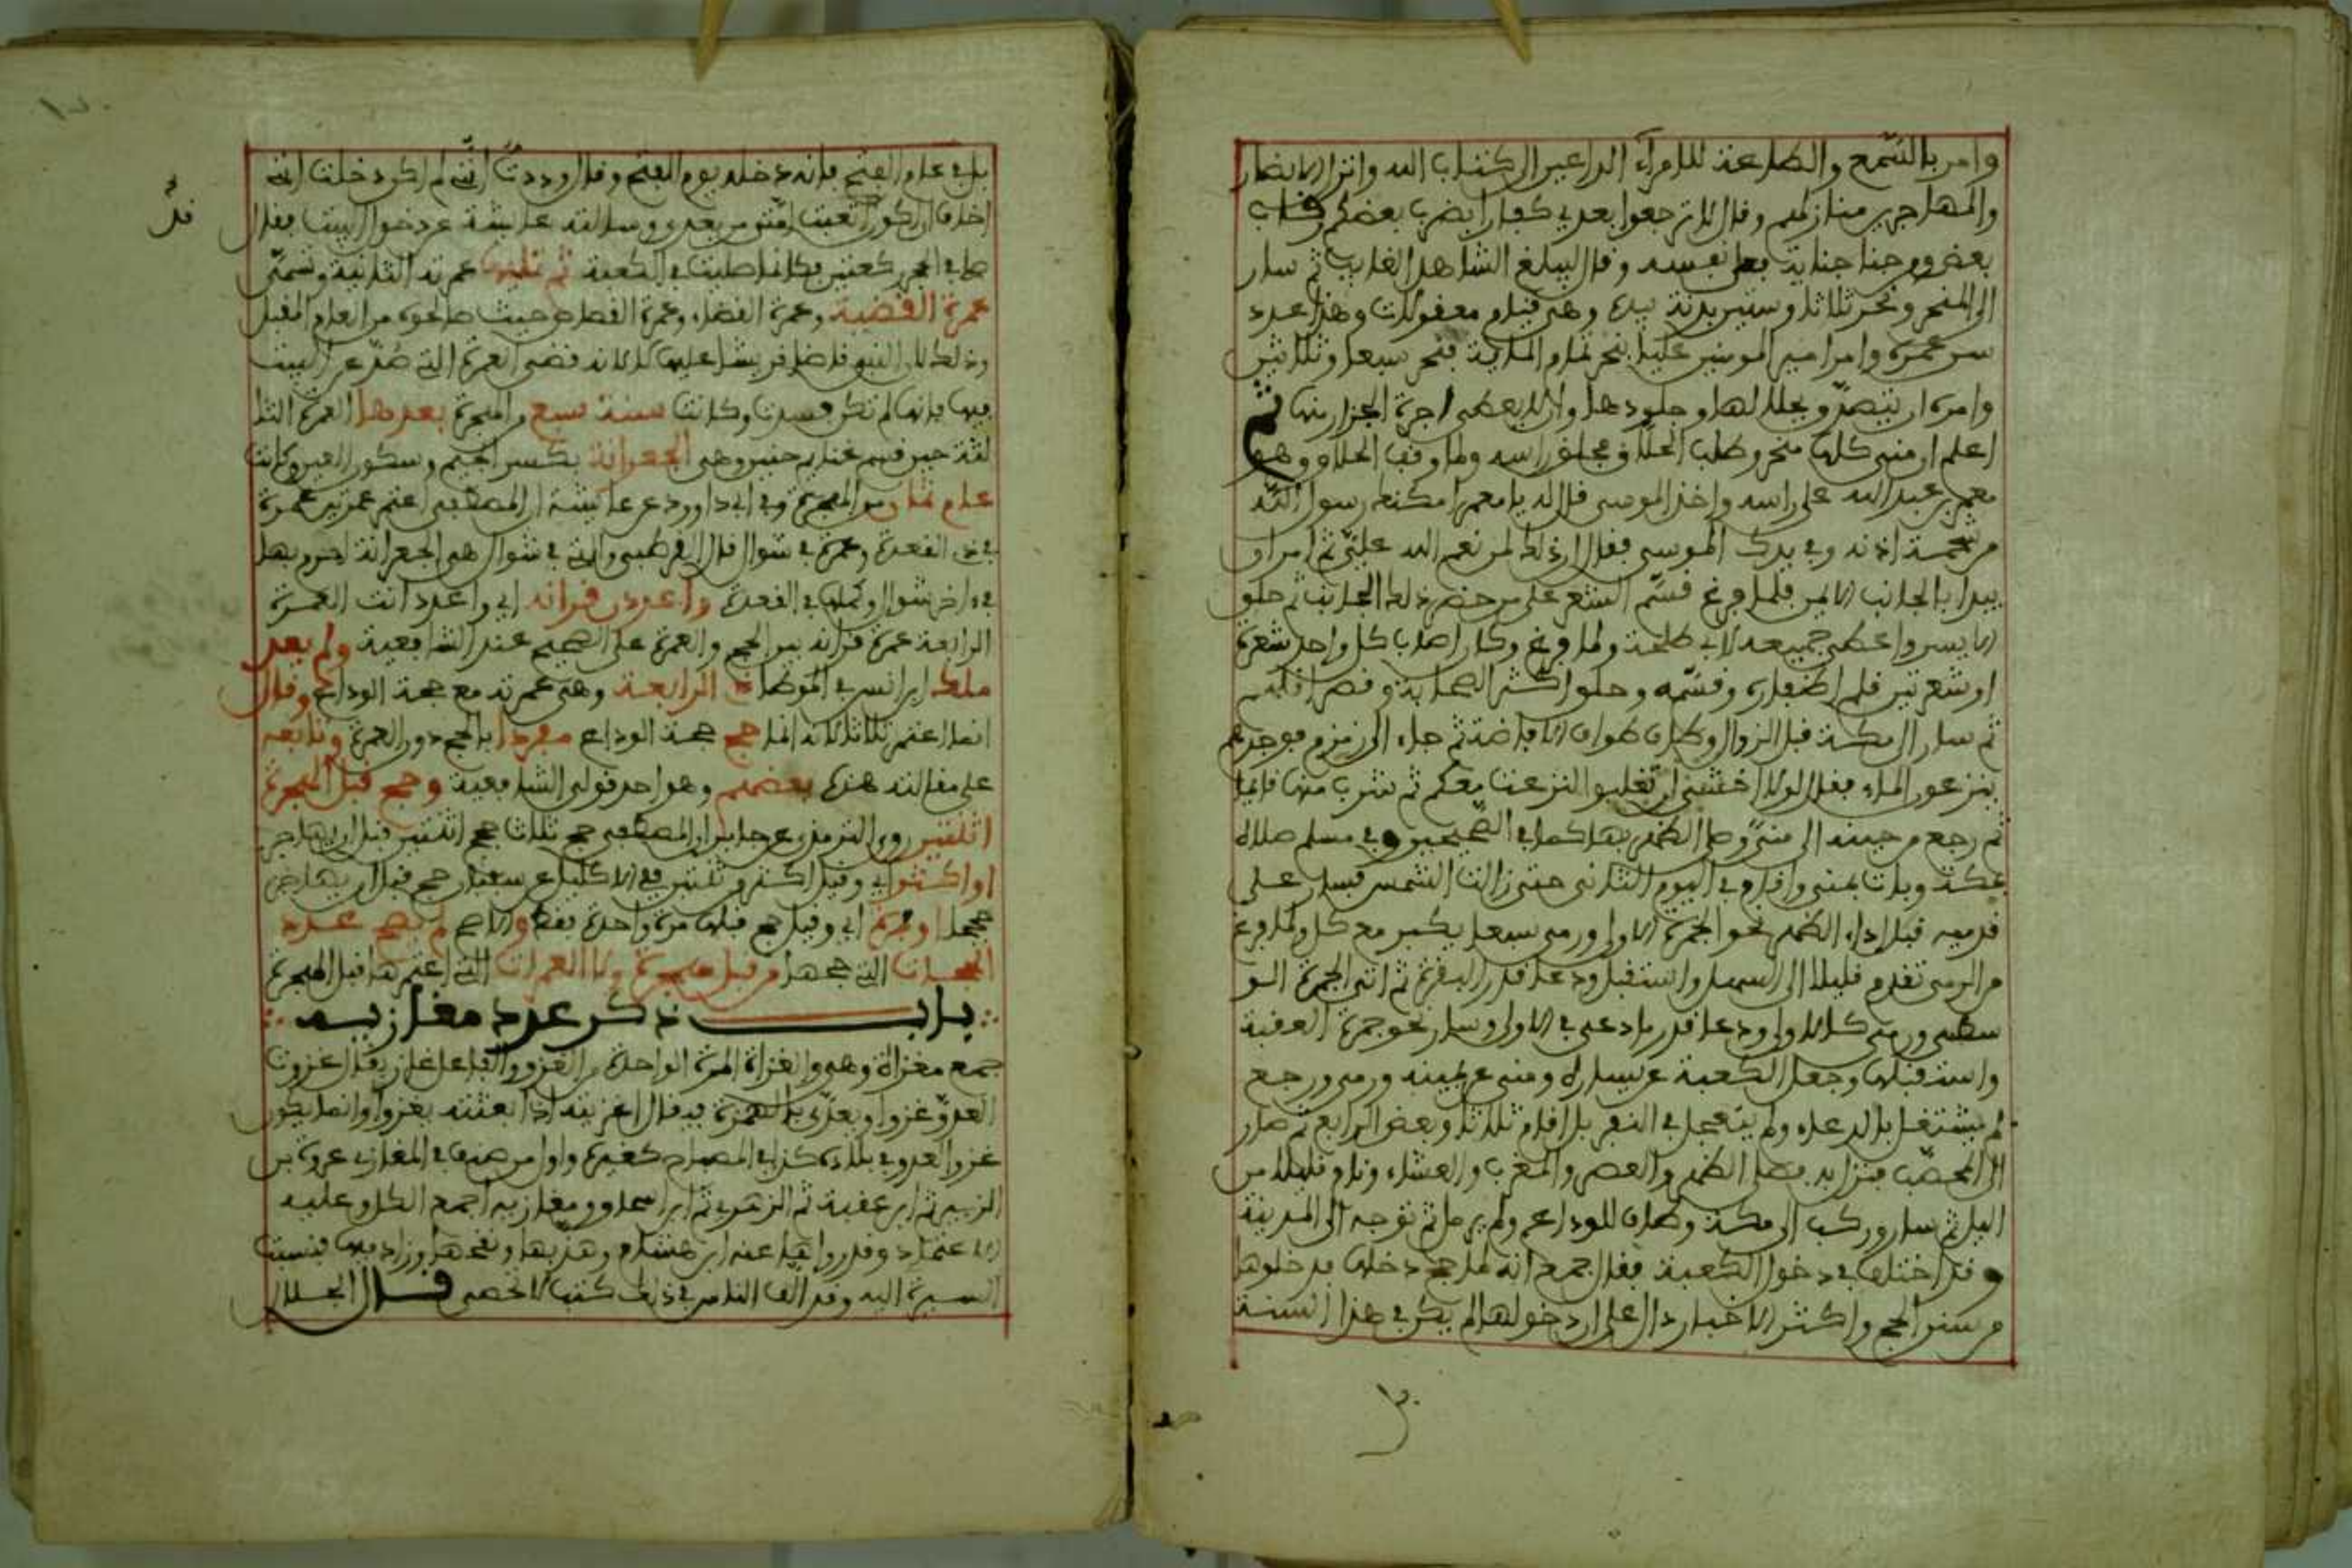 وامر بالسّمع والطاعة للامرآء الداعين الى كتاب الله وانزل الانصار
والمهاجرين منازلهم وقال لا ترجعوا بعدي كفارا يضرب بعضكم رقاب
بعض ومن جنا جناية فعلى نفسه وقال ليبلغ الشاهد الغايب ثم سار
الى المنحر ونحر ثلاثا وستين بدنة بيده وهي قيام معقولات وهذا عدد
سن عمره وامر امير المومنين عليا بنحر تمام الماية فنحر سبعا وثلاثين
وامره ان يتصدّق بجلالها وجلودها وان لا يعطى اجرة الجزار منها ثم
اعلم ان منى كلها منحر وطلب الحلاق فحلق راسه ولما وقف الحلاق وهو
معمر بن عبد الله على راسه واخذ الموسى قال له يا معمر امكنك رسول الله
من شحمة اذنه وفي يدك الموسى فقال ان ذلك لمن نعم الله عليّ ثم امر ان
يبدا بالجانب الايمن فلما فرغ قسّم الشعر على من حضر ذلك الجانب ثم حلق
الايسر واعطى جميعه لابي طلحة ولما فرغ وكان اصاب كل واحد شعرة
او شعرتين قلم اظفاره وقسّمه وحلق اكثر الصحابة وقصر اقلهم
ثم سار الى مكة قبل الزوال وطاف طواف الافاضة ثم جاء الى زمزم فوجدهم
ينزعون الماء فقال لولا اخشى ان تغلبوا لنزعت معكم ثم شرب منها قايما
ثم رجع من حينه الى منًى وصلى الظهر بها كما في الصحيحين وفي مسلم صلاه
بمكة وبات بمنى واقام في اليوم الثاني حتى زالت الشمس فسار على
قدميه قبل اداء الظهر نحو الجمرة الاولى ورمى سبعا يكبر مع كل ولما فرغ
من الرمي تقدم قليلا الى السهل واستقبل ودعا قدر البقرة ثم اتى الجمرة الو
سطى ورمى كالاولى ودعا قدر ما دعى في الاولى وسار نحو جمرة العقبة
واستقبلها وجعل الكعبة عن يساره ومنى عن يمينه ورمى ورجع
لم يشتغل بالدعاء ولم يتعجل في النفر بل اقام ثلاثا وبعض الرابع ثم صار
الى المحصّب فنزل به فصلى الظهر والعصر والمغرب والعشاء ونام قليلا من
اليل ثم سار وركب الى مكة وطاف للوداع ولم يرمل ثم توجه الى المدينة
وقد اختلف في دخول الكعبة فقال جمع انه لما حج دخلها فدخولها
من سنن الحج واكثر الاخبار دال على ان دخولها لم يكن في هذا السنة
بل في عام الفتح فانه دخله يوم الفتح وقال وددتُ انّي لم اكن دخلت اني
اخاف ان اكون اتعبت امتي من بعدي وسالته عايشة عن دخول البيت فقال
صلي في الحجر ركعتين فكانما صليت في الكعبة ثم تليها عمرته الثانية وتسمّى
عمرة القضية وعمرة القضاء وعمرة القصاص حيث صالحوه من العام المقبل
وذلك لان النبي قاضا قريشا عليها لا لانه قضى العمرة التي صُدّ عن البيت
فيها فانها لم تكن فسدت وكانت سنة سبع من الهجرة بعدها العمرة الثا
لثة حين قسم غنايم حنين وهي الجعرانة بكسر الجيم وسكون العين وكانت
عام ثمان من الهجرة وفي ابي داوود عن عايشة ان المصطفى اعتمر عمرتين عمرة
في ذي القعدة وعمرة في شوال قال القرطبي والتي في شوال هي الجعرانة احرم بها
في اخر شوال وكملها في القعدة واعدد قرانه اي واعدد انت العمرة
الرابعة عمرة قرانه بين الحج والعمرة على الصحيح عند الشافعية ولم يعد
مالك ابن انس في الموطا الرابعة وهي عمرته مع حجة الوداع وقال
انما اعتمر ثلاثا لانه انما حج حجة الوداع مفردا بالحج دون العمرة وتابعه
على مقالته هذه بعضهم وهو احد قولي الشافعية وحج قبل الهجرة
اثنتين روى الترمذي عن جابر ان المصطفى حج ثلاث حجج اثنتين قبل ان يهاجر
او اكثر اي وقيل اكثر من ثنتين ففي الاكليل عن سفيان حج قبل ان يهاجر
حججا او مرة اي وقيل حج قبلها مرة واحدة فقط والاصح لم يصح عدد
الحجات التي حجها من قبل هجرة ولا العمرات التي اعتمرها قبل الهجرة
باب ذكر عدد مغازيه
جمع مغزاة وهي والغزاة المرة الواحدة من الغزو والفاعل غاز يقال غزوت
العدوّ غزوا ويعدّى بالهمزة فيقال اغزيته اذا بعثته يغزوا وانما يكون
غزو العدو في بلاده كذا في المصباح كغيره واول من صنف في المغازي عروة بن
الزبير ثم ابن عقبة ثم الزهري ثم ابن اسحاق ومغازيه اجمع الكل وعليه
الاعتماد وقد رواها عنه ابن هشام وهذبها ونقحها وزاد فيها فنسبت
السيرة اليه وقد الّف الناس في ذلك كتبا لا تحصى قال الجلال